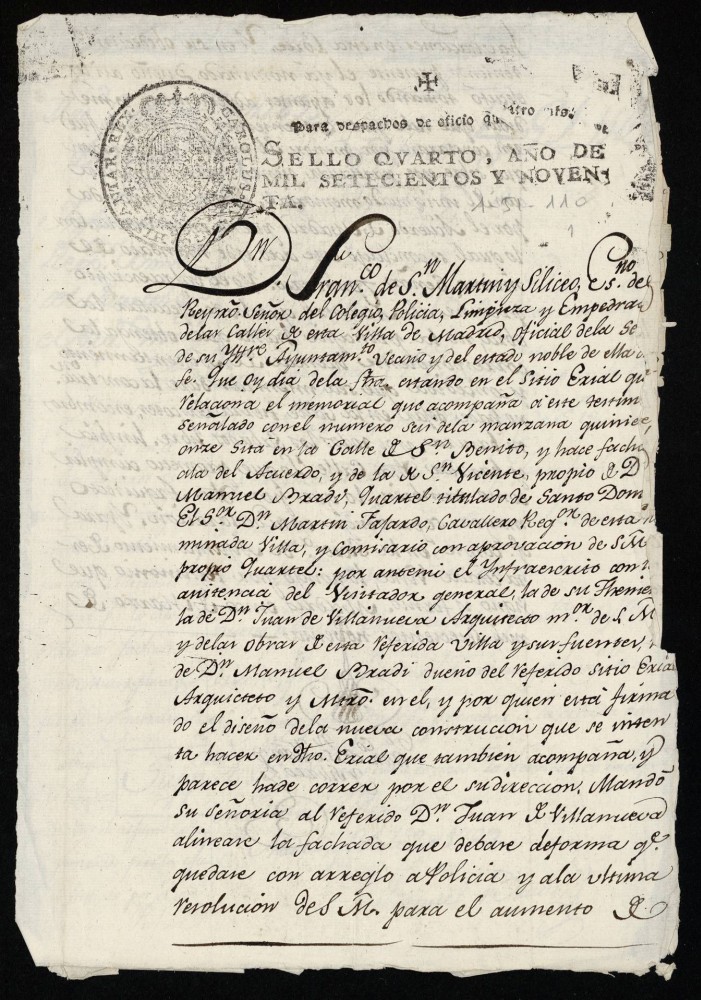 ✠
Para despachos de oficio quatro mrs.
SELLO QVARTO, AÑO DE
MIL SETECIENTOS Y NOVEN-
TA.
CAROLUS
Dn. Franco. de Sn. Martin y Siliceo, Esno. del
Reyno Señor del Colegio, Policia, Limpieza y Empedra
delas Calles de esta Villa de Madrid, oficial dela Se
de su Yttre. Ayuntamto. vecino y del estado noble de ella
fe. Que oy dia dela fha. estando en el Sitio Erial qu
relaciona el memorial que acompaña a este testim
señalado con el numero seis dela manzana quinie
onze sita en la Calle de Sn. Benito, y hace facha
ala del Acuerdo, y de la de Sn. Vicente, propio de D
Manuel Bradi, Quartel titulado de Santo Dom
El Sor. Dn. Martin Fajardo, Cavallero Regor. de esta
minada Villa, y Comisario con aprovacion de S M
propio Quartel: por antemi el Ynfraescrito con
asistencia del Visitador general, la de su Thenie
la de Dn. Juan de Villanueva Arquitecto mor. de S. M
y delas obras de esta referida Villa y sus fuentes,
de Dn. Manuel Bradi dueño del referido sitio Eria
Arquicteto y Mtro. en el, y por quien está firma
do el diseño dela nueva construcion que se inten
ta hacer en dho. Erial que tambien acompaña, y
parece hade correr por el su direccion. Mandó
su señoria al referido Dn. Juan de Villanueva
alinease la fachada que debase de forma qe.
quedase con arreglo a Policia y ala ultima
resolucion de S. M. para el aumento de